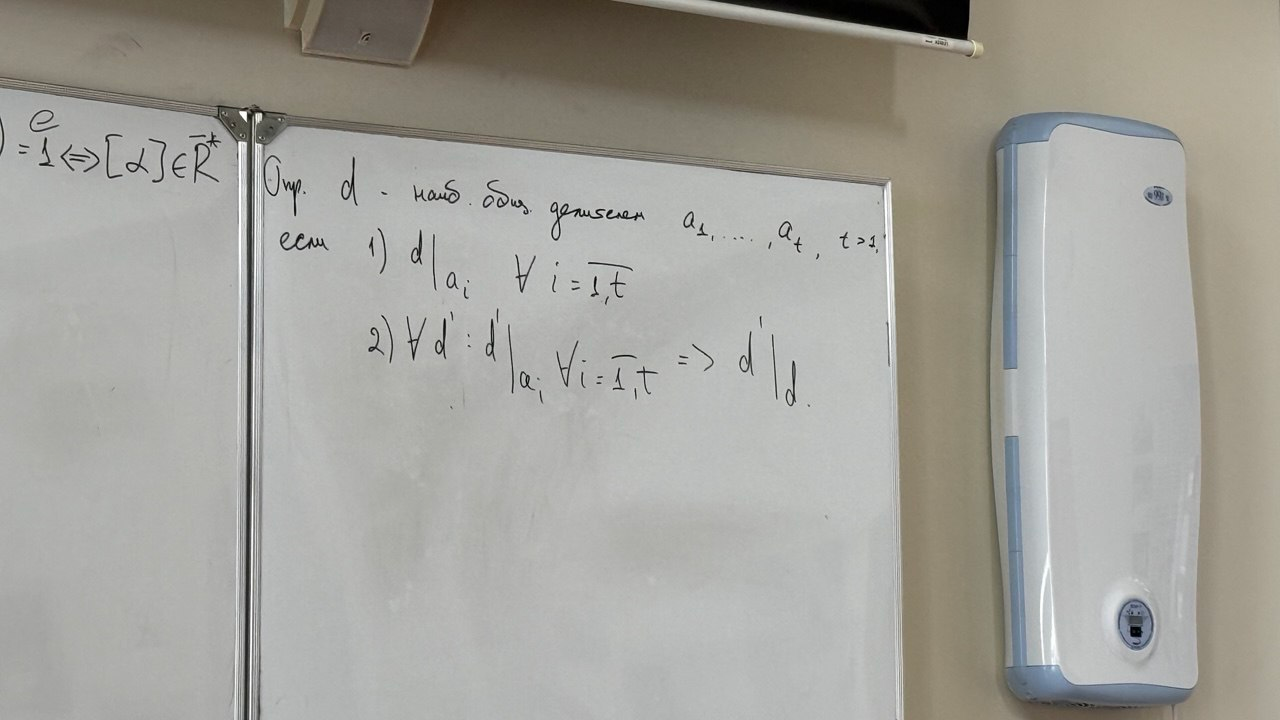 ) = 1 <=> [α] ∈ R̅*
e
Опр. d - наиб. общ. делителем a₁, ...., aₜ, t > 1,
если 1) d | aᵢ ∀ i = 1,t
2) ∀ d' : d' | aᵢ ∀ i = 1,t => d' | d.